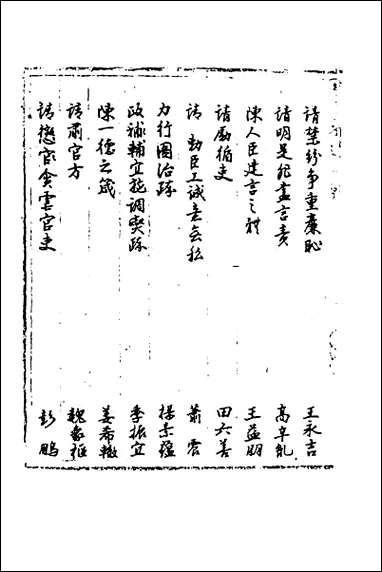 請禁紛爭重廉恥 王永吉
請明是非盡言責 高辛胤
陳人臣建言之體 王益朋
請勵循吏 田六善
請勅臣工誠意會私 蕭震
力行圖治疏 楊素蘊
政補輔宜挽調疏 季振宜
陳一德之箴 姜希轍
請肅官方 魏象樞
請懲官貪害吏 彭鵬